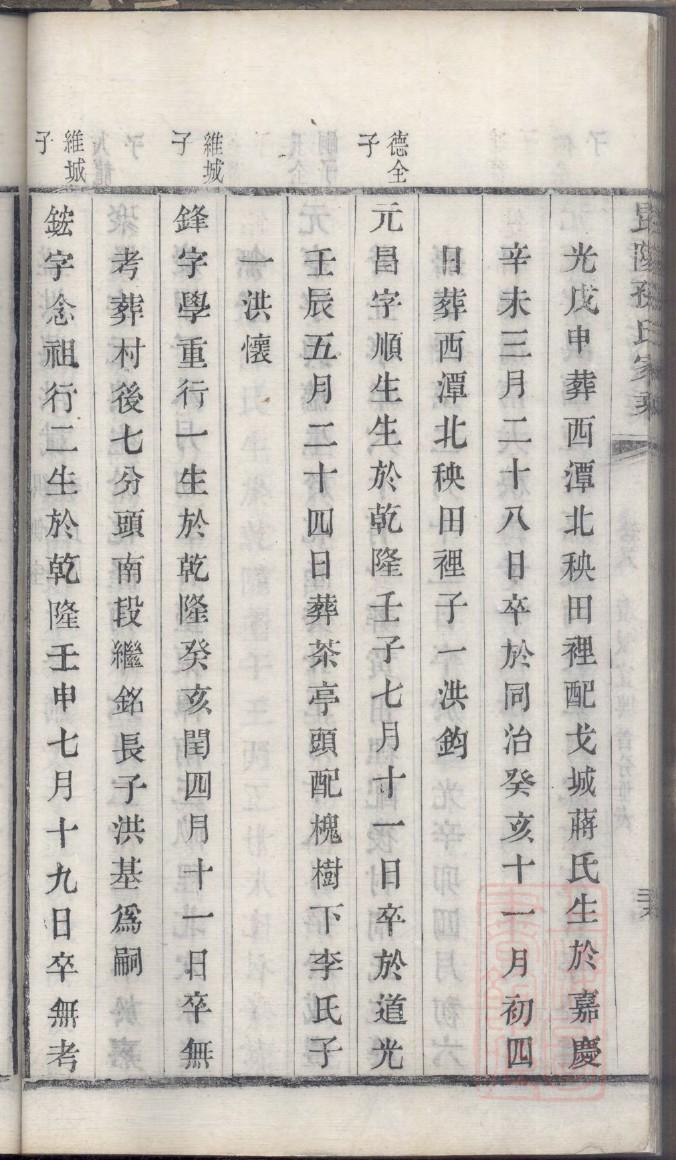 毘陵孫氏家乘
光戊申葬西潭北秧田裡配戈城蔣氏生於嘉慶
辛未三月二十八日卒於同治癸亥十一月初四
日葬西潭北秧田裡子一洪鈞
德全
子
元昌字順生生於乾隆壬子七月寸一日卒於道光
壬辰五月二十四日葬茶亭頭配槐樹下李氏子
一洪懷
維城
子
鋒字學重行一生於乾隆癸亥閏四月十一日卒無
考葬村後七分頭南段繼銘長子洪基爲嗣
維城
子
鋐字念祖行二生於乾隆壬申七月十九日卒無考